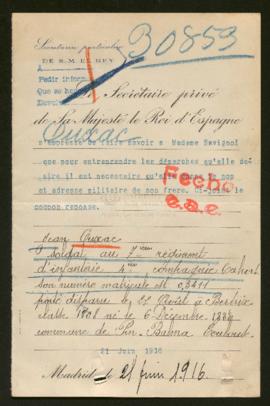 Secrétairerie particulière
DE S. M. EL REY
B 0853
A
Pedir inform
Que se ha
Escri
Le Secrétaire privé
de Sa Majesté le Roi d'Espagne
Ouxac
s'empresse de faire savoir à Madame Savignol
que pour entreprendre les démarches qu'elle dé-
sire il est nécessaire qu'elle
et adresse militaire de son frere. Ci-joint le
coupon reponse.
Fecho
e.a.e.
Jean Ouxac
soldat au 7ième régiment
d'infanterie 4ème compagnie Cahors
son numéro matricule est 03211
porté disparu le 22 Août à Bertrix
classe 1908 né le 6 Décembre 1888
commune de Pin Balma
21 Juin 1916
Madrid le 21 juin 1916.